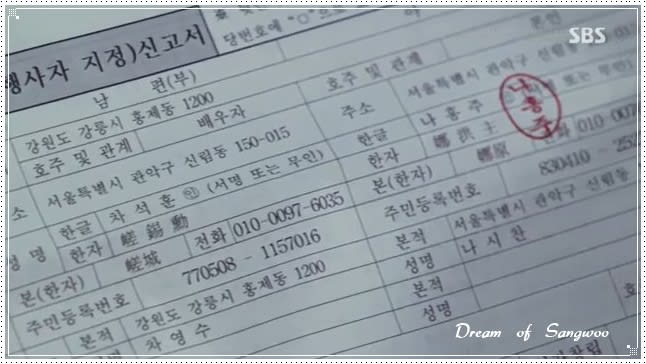 행사자 지정)신고서
당번호에 "○"으로
SBS
남 편(부)
본인
강원도 강릉시 홍제동 1200
호주 및 관계
배우자
호주 및 관계
서울특별시 관악구 신림동 150-015
주소
서울특별시 관악구 신림
소
한글
차 석 훈 ㊞ (서명 또는 무인)
한글
나 홍 주
또는 무인)
나홍주
성 명
한자
전화
010-0097-6035
한자
전화
010-007
본(한자)
본(한자)
주민등록번호
770508 - 1157016
주민등록번호
830410 - 252
본적
강원도 강릉시 홍제동 1200
본적
서울특별시 관악구 신림동
성명
차 영 수
성명
나 시 찬
본적
성명
Dream of Sangwoo